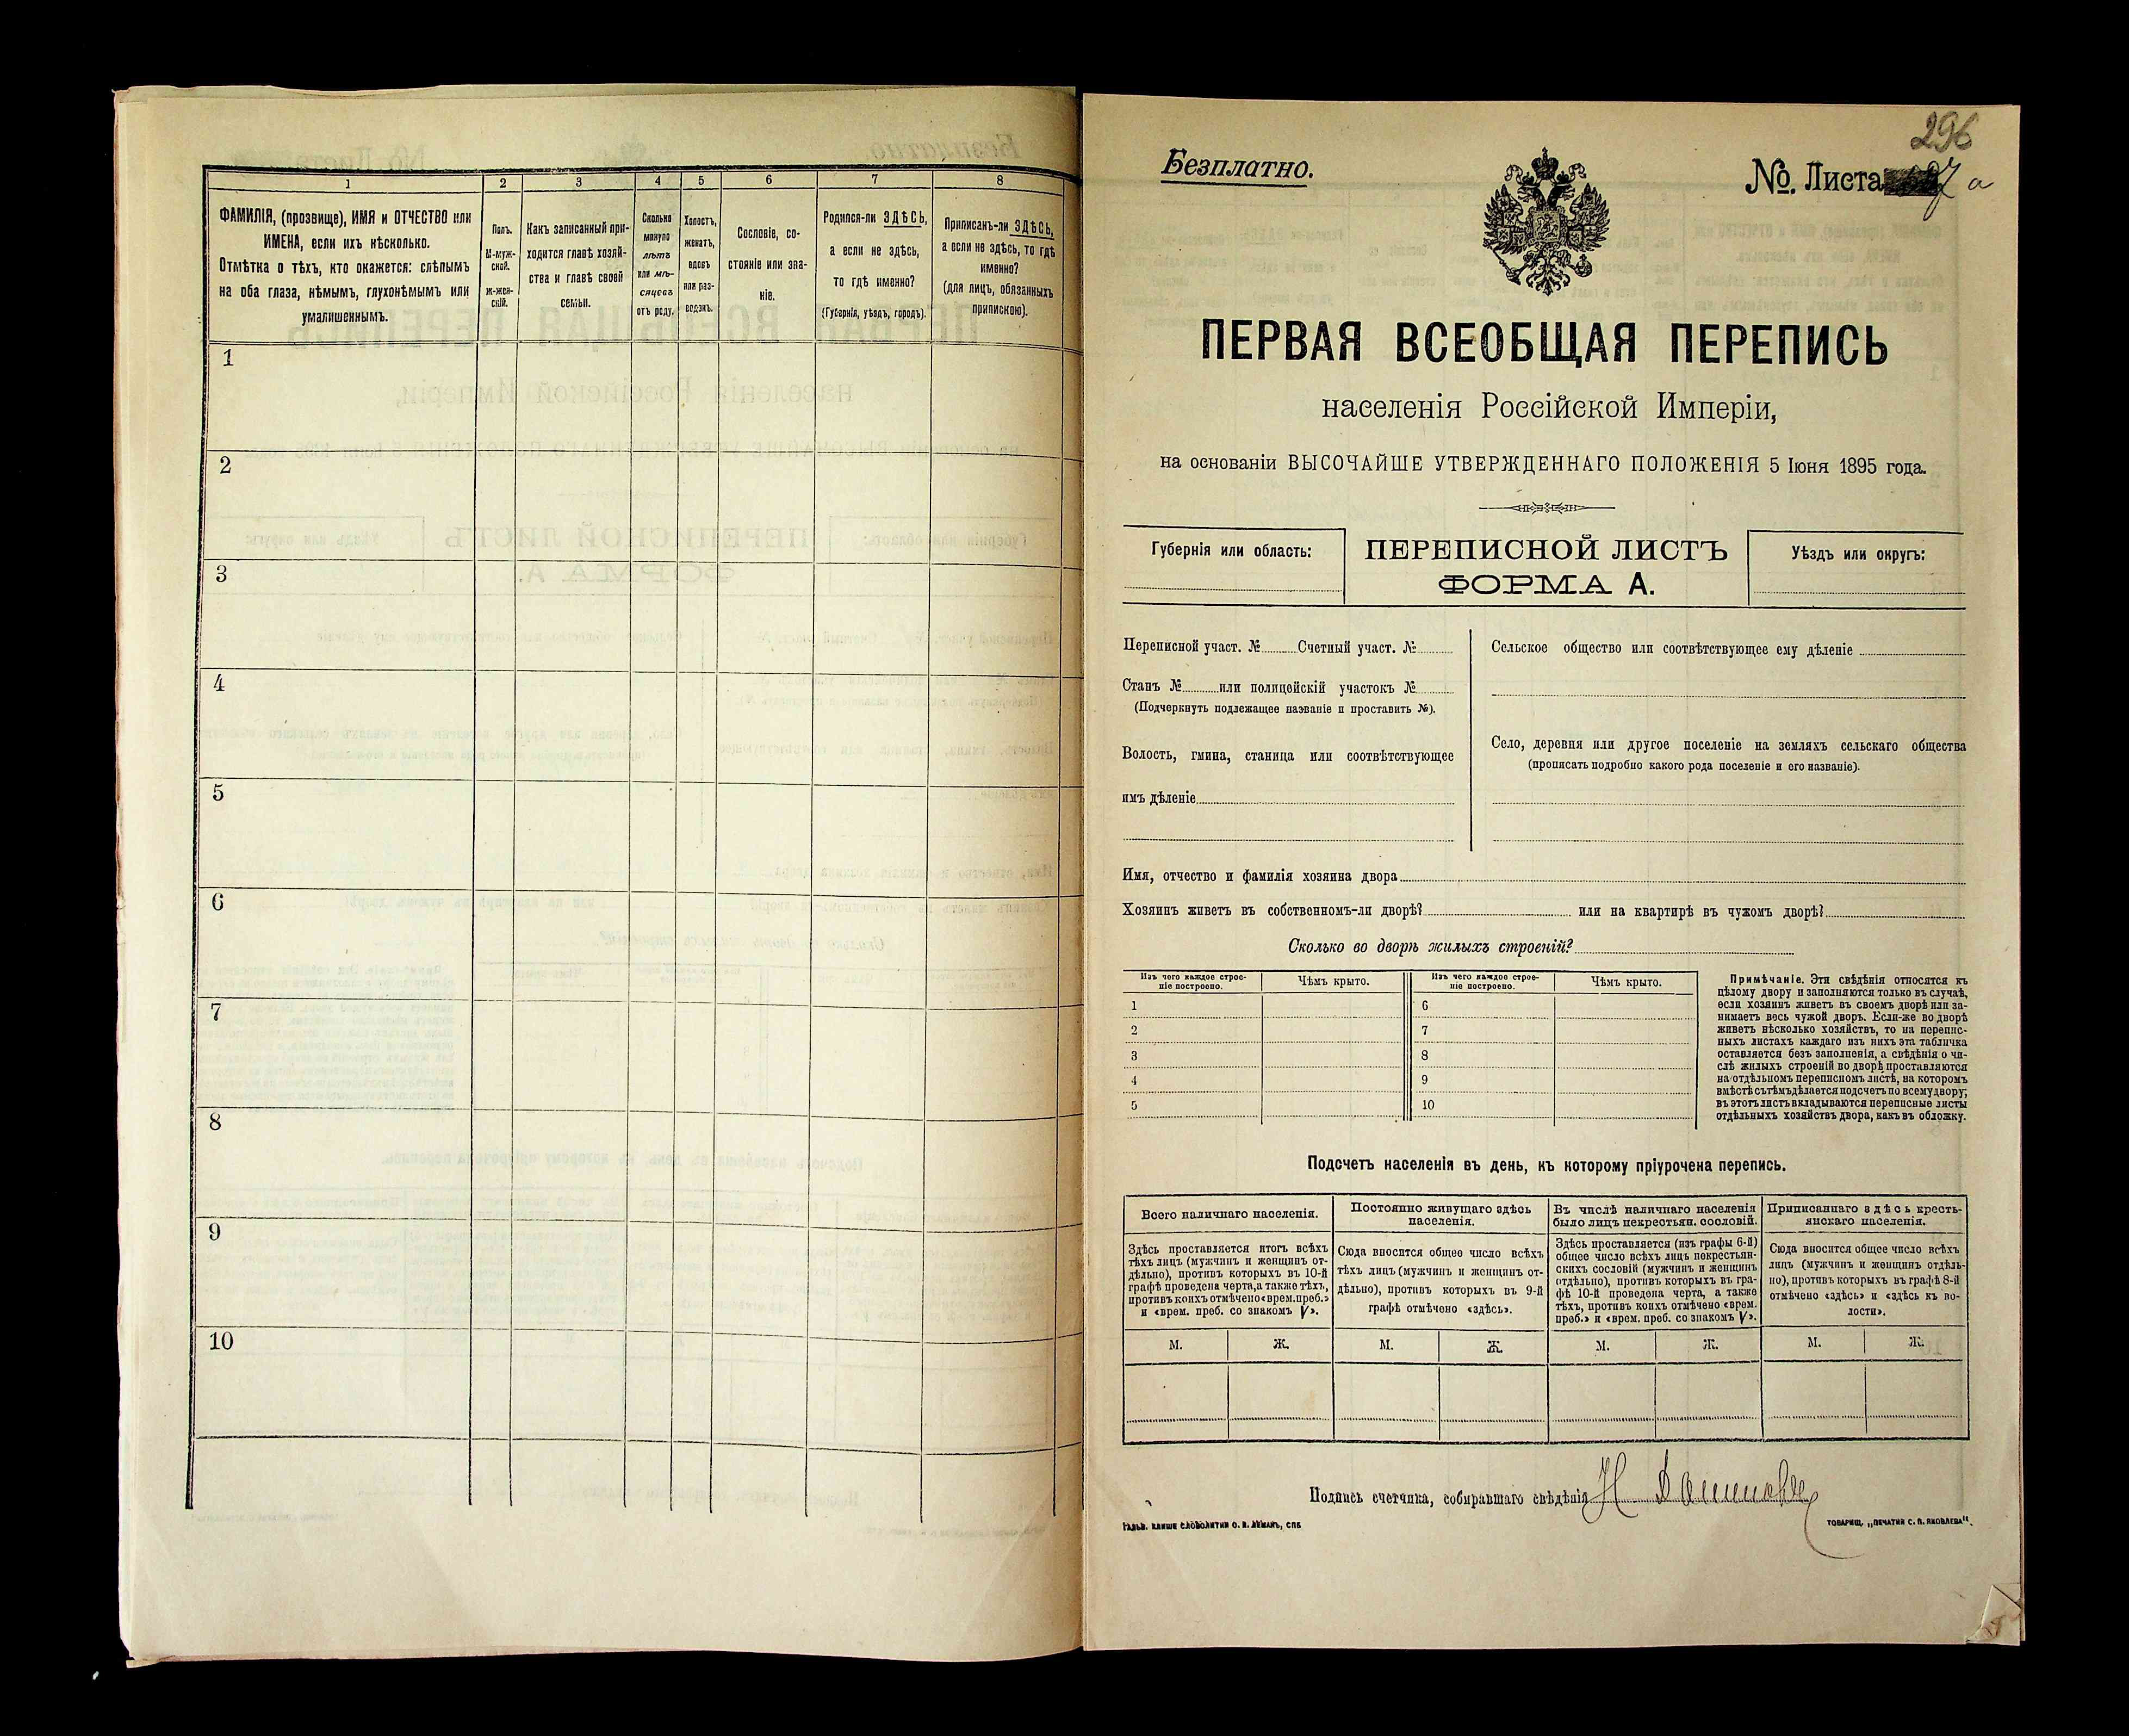 1 2 3 4 5 6 7 8
ФАМИЛІЯ, (прозвище), ИМЯ и ОТЧЕСТВО или
ИМЕНА, если ихъ нѣсколько.
Отмѣтка о тѣхъ, кто окажется: слѣпымъ
на оба глаза, нѣмымъ, глухонѣмымъ или
умалишеннымъ.
Полъ.
М-муж-
ской.
Ж-жен-
скій.
Какъ записанный при-
ходится главѣ хозяй-
ства и главѣ своей
семьи.
Сколько
минуло
лѣтъ
или мѣ-
сяцевъ
отъ роду.
Холостъ,
женатъ,
вдовъ
или раз-
веденъ.
Сословіе, со-
стояніе или зва-
ніе.
Родился-ли ЗДѢСЬ,
а если не здѣсь,
то гдѣ именно?
(Губернія, уѣздъ, городъ).
Приписанъ-ли ЗДѢСЬ,
а если не здѣсь, то гдѣ
именно?
(для лицъ, обязанныхъ
припискою).
1
2
3
4
5
6
7
8
9
10
296
Безплатно.
№. Листа 7 а
ПЕРВАЯ ВСЕОБЩАЯ ПЕРЕПИСЬ
населенія Россійской Имперіи,
на основаніи ВЫСОЧАЙШЕ УТВЕРЖДЕННАГО ПОЛОЖЕНІЯ 5 Іюня 1895 года.
Губернія или область:
ПЕРЕПИСНОЙ ЛИСТЪ
ФОРМА А.
Уѣздъ или округъ:
Переписной участ. № Счетный участ. №
Станъ № или полицейскій участокъ №
(Подчеркнуть подлежащее названіе и проставить №).
Волость, гмина, станица или соотвѣтствующее
имъ дѣленіе
Сельское общество или соотвѣтствующее ему дѣленіе
Село, деревня или другое поселеніе на земляхъ сельскаго общества
(прописать подробно какого рода поселеніе и его названіе).
Имя, отчество и фамилія хозяина двора
Хозяинъ живетъ въ собственномъ-ли дворѣ? или на квартирѣ въ чужомъ дворѣ?
Сколько во дворѣ жилыхъ строеній?
Изъ чего каждое строе-
ніе построено.
Чѣмъ крыто.
Изъ чего каждое строе-
ніе построено.
Чѣмъ крыто.
1 6
2 7
3 8
4 9
5 10
Примѣчаніе. Эти свѣдѣнія относятся къ
цѣлому двору и заполняются только въ случаѣ,
если хозяинъ живетъ въ своемъ дворѣ или за-
нимаетъ весь чужой дворъ. Если-же во дворѣ
живетъ нѣсколько хозяйствъ, то на перепис-
ныхъ листахъ каждаго изъ нихъ эта табличка
оставляется безъ заполненія, а свѣдѣнія о чи-
слѣ жилыхъ строеній во дворѣ проставляются
на отдѣльномъ переписномъ листѣ, на которомъ
вмѣстѣ съ тѣмъ дѣлается подсчетъ по всему двору;
въ этотъ листъ вкладываются переписные листы
отдѣльныхъ хозяйствъ двора, какъ въ обложку.
Подсчетъ населенія въ день, къ которому пріурочена перепись.
Всего наличнаго населенія.
Здѣсь проставляется итогъ всѣхъ
тѣхъ лицъ (мужчинъ и женщинъ от-
дѣльно), противъ которыхъ въ 10-й
графѣ проведена черта, а также тѣхъ,
противъ коихъ отмѣчено «врем. преб.»
и «врем. преб. со знакомъ V».
Постоянно живущаго здѣсь
населенія.
Сюда вносится общее число всѣхъ
тѣхъ лицъ (мужчинъ и женщинъ от-
дѣльно), противъ которыхъ въ 9-й
графѣ отмѣчено «здѣсь».
Въ числѣ наличнаго населенія
было лицъ некрестьян. сословій.
Здѣсь проставляется (изъ графы 6-й)
общее число всѣхъ лицъ некрестьян-
скихъ сословій (мужчинъ и женщинъ
отдѣльно), противъ которыхъ въ гра-
фѣ 10-й проведена черта, а также
тѣхъ, противъ коихъ отмѣчено «врем.
преб.» и «врем. преб. со знакомъ V».
Приписаннаго здѣсь кресть-
янскаго населенія.
Сюда вносится общее число всѣхъ
лицъ (мужчинъ и женщинъ отдѣль-
но), противъ которыхъ въ графѣ 8-й
отмѣчено «здѣсь» и «здѣсь къ во-
лости».
М. Ж. М. Ж. М. Ж. М. Ж.
Подпись счетчика, собиравшаго свѣдѣнія Н
Гальв. клише словолитни О. И. Леманъ, СПБ
ТОВАРИЩ. „ПЕЧАТНЯ С. П. ЯКОВЛЕВА".